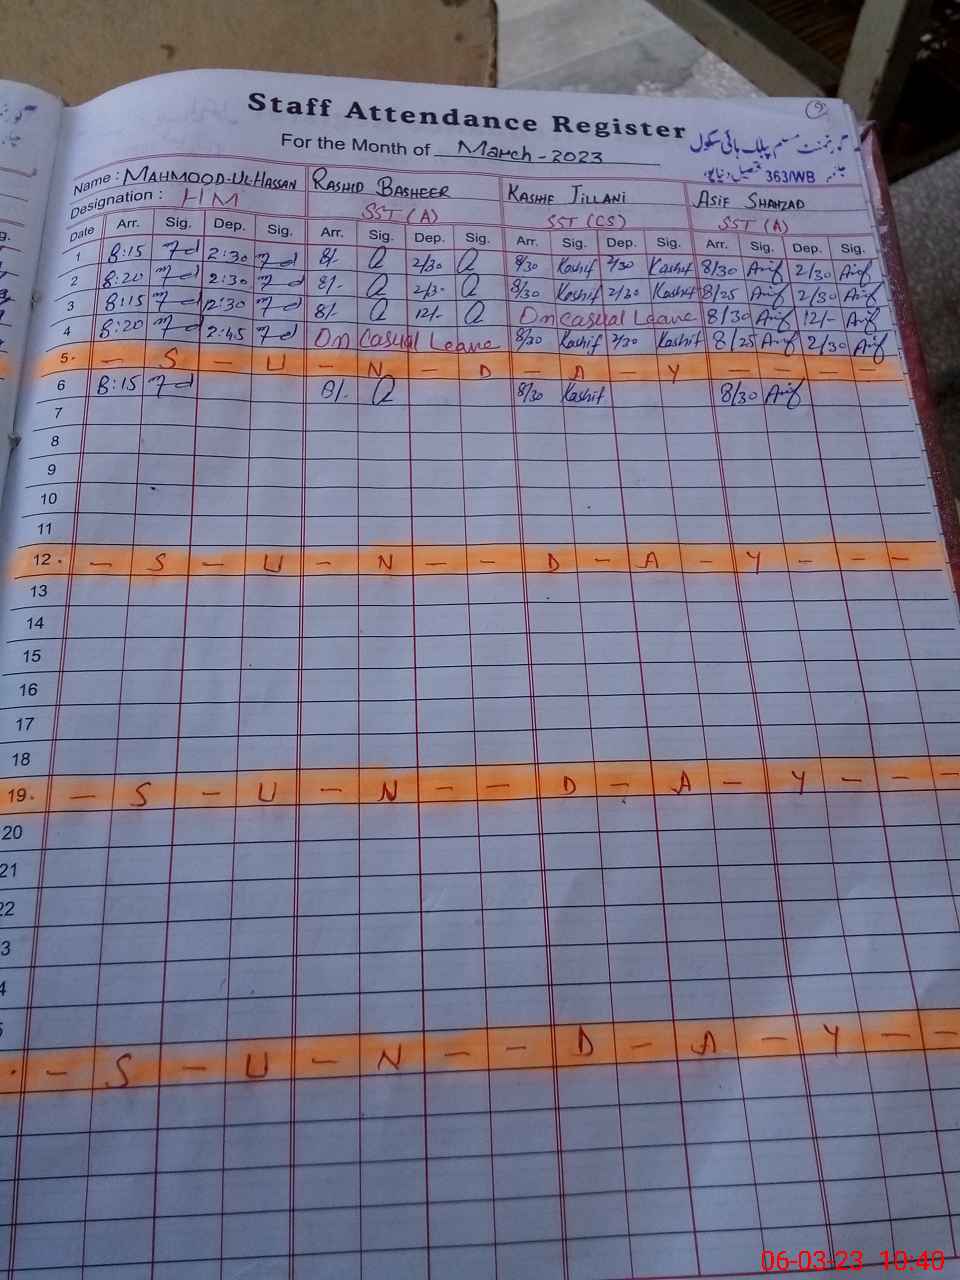 2
Staff Attendance Register
For the Month of March - 2023
گورنمنٹ مسلم پبلک ہائی سکول
363/WB تحصیل دنیاپور
Name : MAHMOOD-UL-HASSAN RASHID BASHEER KASHIF JILLANI ASIF SHAHZAD
Designation : HM SST (A) SST (CS) SST (A)
Date Arr. Sig. Dep. Sig. Arr. Sig. Dep. Sig. Arr. Sig. Dep. Sig. Arr. Sig. Dep. Sig.
1 8:15 2:30 8/- 2/30 8/30 Kashif 2/30 Kashif 8/30 Asif 2/30 Asif
2 8:20 2:30 8/- 2/30 8/30 Kashif 2/30 Kashif 8/25 Asif 2/30 Asif
3 8:15 12:30 8/- 12/- On Casual Leave 8/30 Asif 12/- Asif
4 8:20 2:45 On Casual Leave 8/30 Kashif 2/30 Kashif 8/25 Asif 2/30 Asif
5. - S - U - N - D - A - Y - - - -
6 8:15 8/- 8/30 Kashif 8/30 Asif
7
8
9
10
11
12. - S - U - N - - D - A - Y - - -
13
14
15
16
17
18
19. - S - U - N - - D - A - Y - - -
20
21
22
3
4
5
. - S - U - N - - D - A - Y - -
06-03-23 10:40